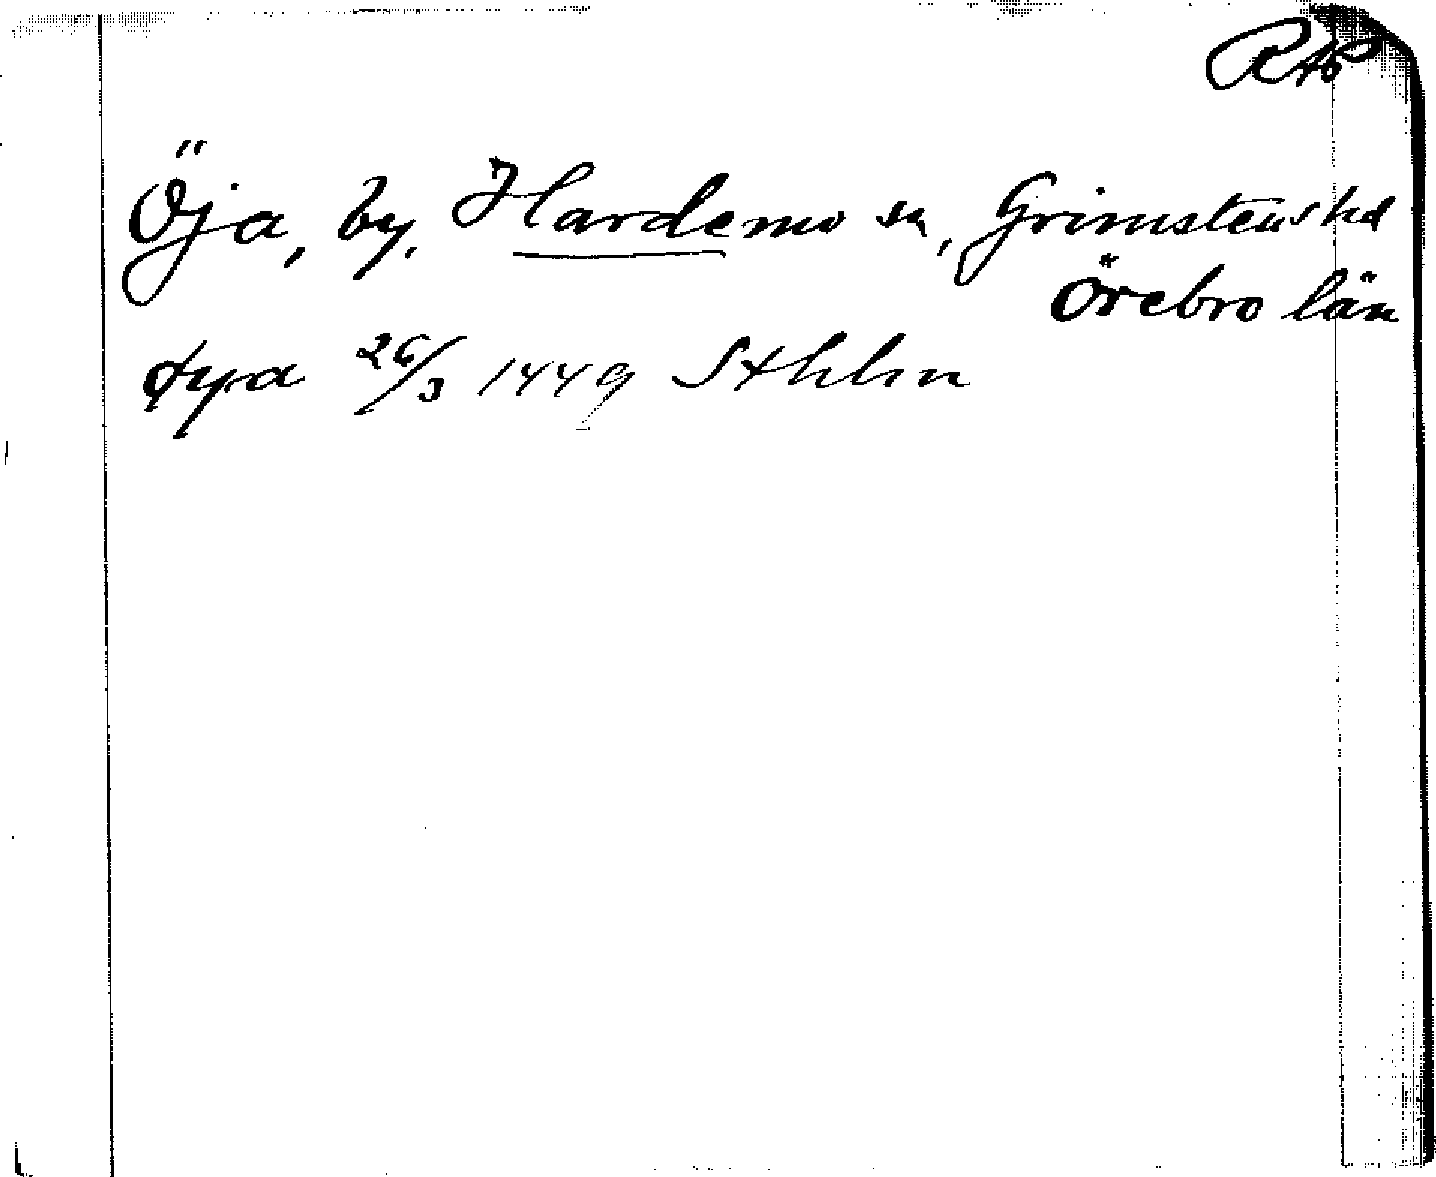 RAp
Öja, by, Hardemo sn, Grimstens hd
Örebro län
øya 26/3 1449 Sthlm